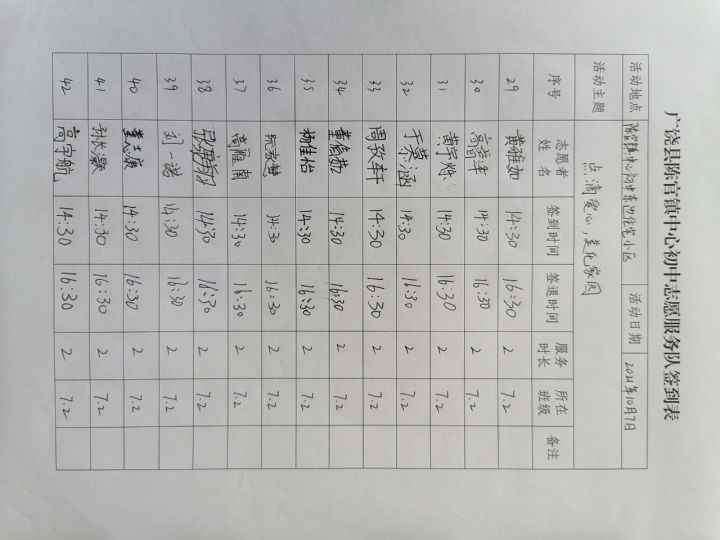 广饶县陈官镇中心初中志愿服务队签到表
活动地点 陈官镇中心初中东边住宅小区 活动日期 2021年10月7日
活动主题 点滴爱心，美化家园
序号 志愿者姓名 签到时间 签退时间 服务时长 所在班级 备注
29 黄雅如 14:30 16:30 2 7.2
30 14:30 16:30 2 7.2
31 黄宇烁 14:30 16:30 2 7.2
32 于慕涵 14:30 16:30 2 7.2
33 周致轩 14:30 16:30 2 7.2
34 14:30 16:30 2 7.2
35 杨佳怡 14:30 16:30 2 7.2
36 阮家慧 14:30 16:30 2 7.2
37 高雅南 14:30 16:30 2 7.2
38 14:30 16:30 2 7.2
39 刘一诺 14:30 16:30 2 7.2
40 董士康 14:30 16:30 2 7.2
41 孙长灏 14:30 16:30 2 7.2
42 高宇航 14:30 16:30 2 7.2